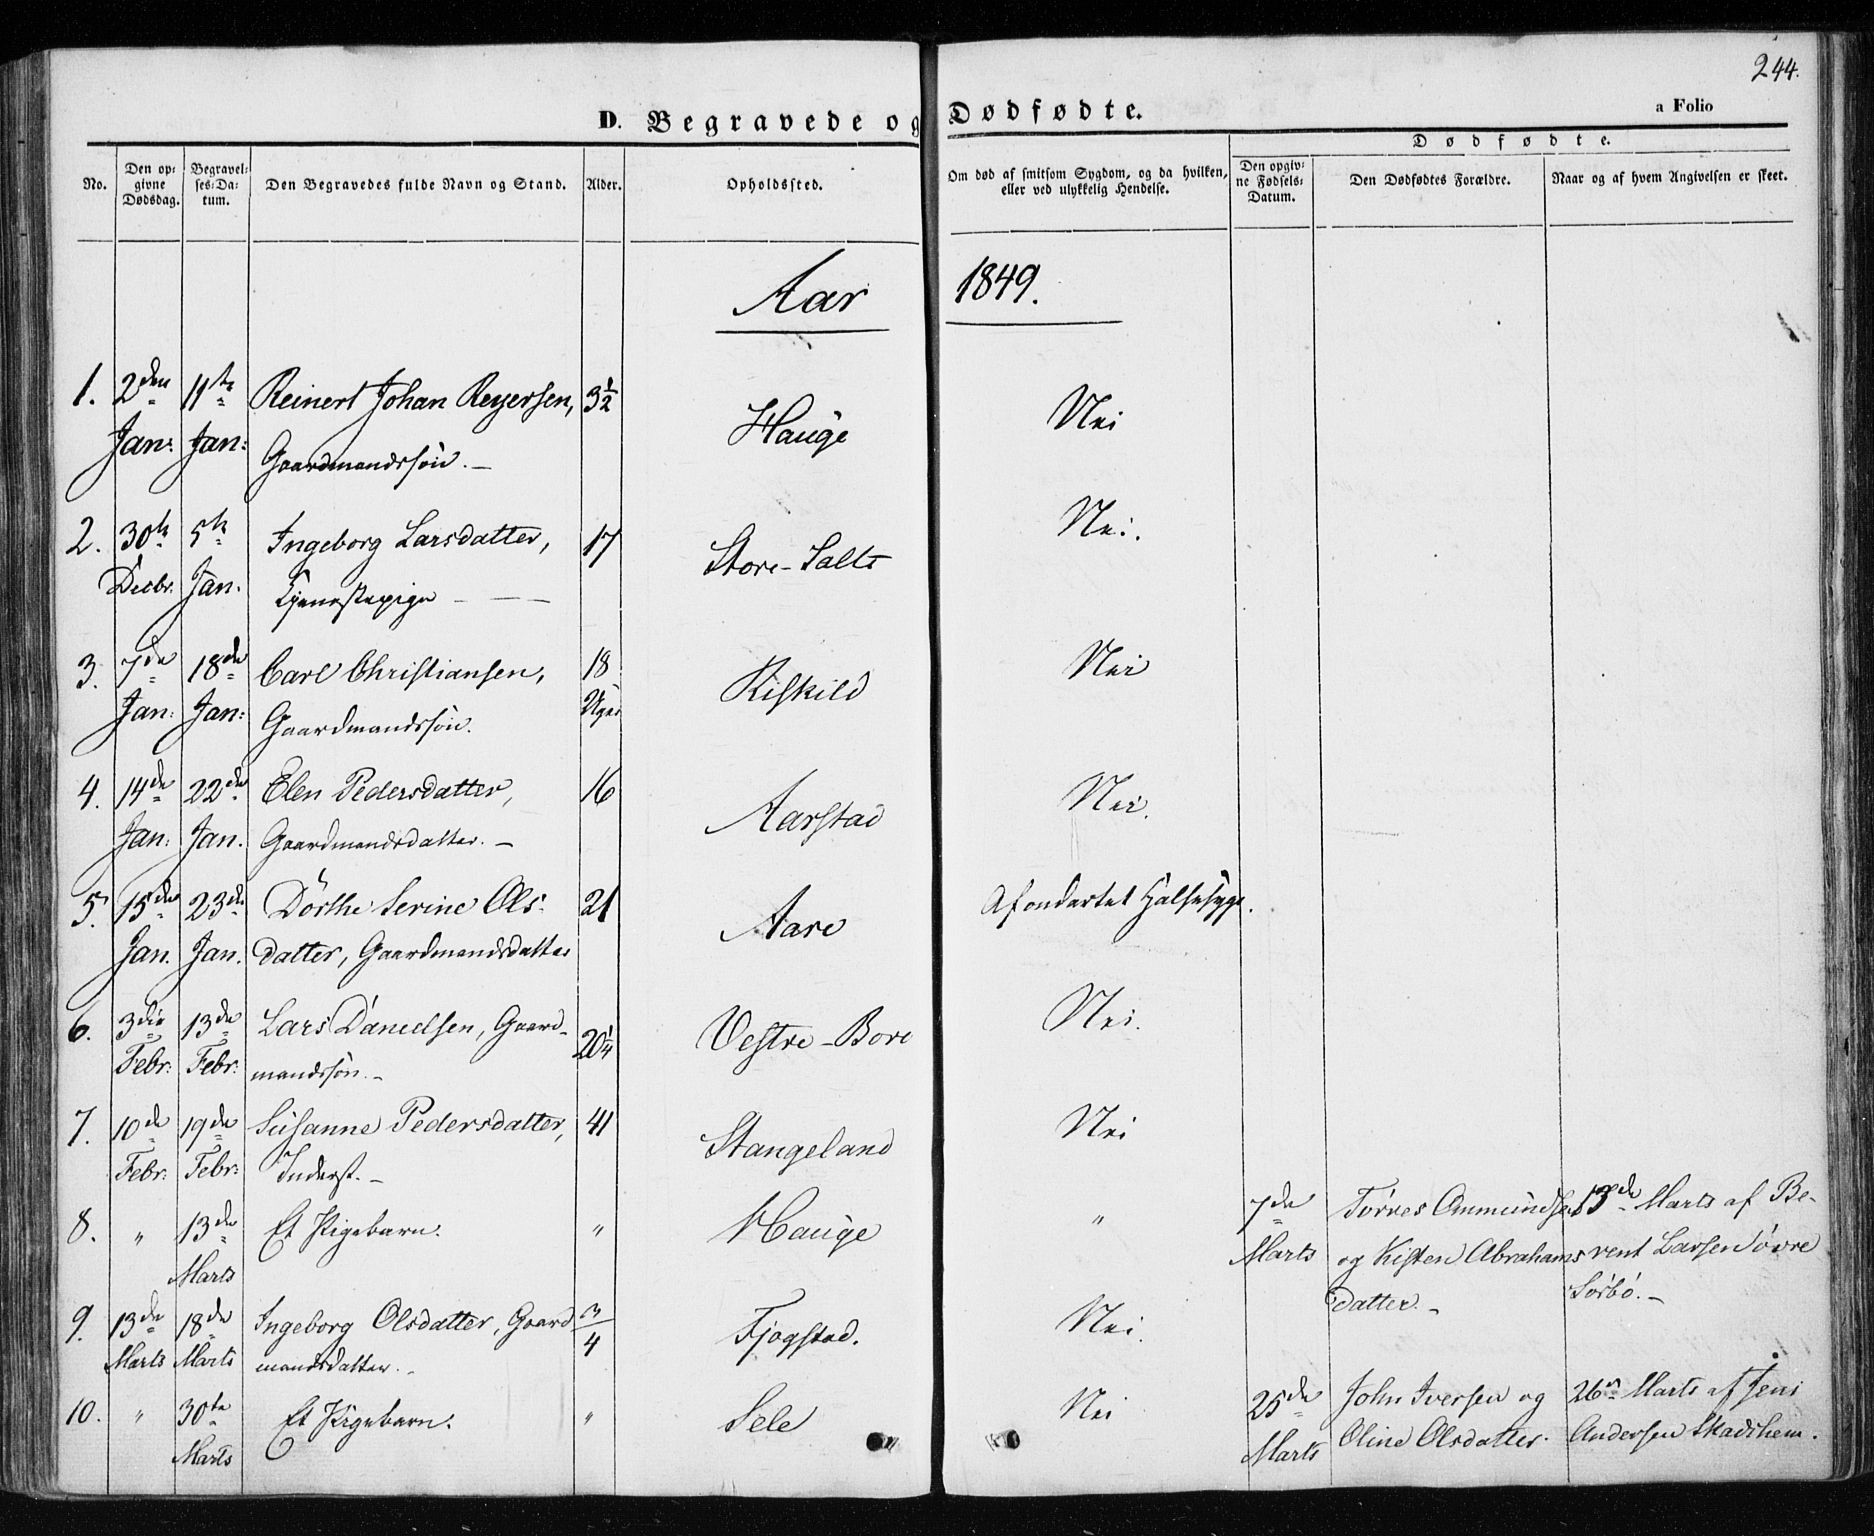 244.
D. Begravede og Dødfødte.
a Folio
No.
Den opgivne Dødsdag.
Begravelses-Datum.
Den Begravedes fulde Navn og Stand.
Alder.
Opholdssted.
Om død af smitsom Sygdom, og da hvilken,
eller ved ulykkelig Hendelse.
Dødfødte.
Den opgivne Fødsels-Datum.
Den Dødfødtes Forældre.
Naar og af hvem Angivelsen er skeet.
Aar 1849.
1. 2den 11te Reinert Johan Reyersen, 3½ Hauge Nei
Jan: Jan: Gaardmandssøn. —
2. 30te 5te Ingeborg Larsdatter, 17 Store-Salte Nei.
Decbr. Jan. Tjenestepige — —
3. 7de 18de Carl Christiansen, 18 Uger Kiskild Nei
Jan: Jan: Gaardmandssøn.
4. 14de 22de Elen Pedersdatter, 16 Aarstad Nei.
Jan: Jan. Gaardmandsdatter. —
5. 15de 23de Dörthe Serine Ols- 21 Aare Af ondartet Halssyge.
Jan. Jan. datter, Gaardmandsdatter
6. 3die 13de Lars Danielsen, Gaard- 20¼ Vestre-Bore Nei.
Febr: Febr: mandssøn. —
7. 10de 19de Susanne Pedersdatter, 41 Stangeland Nei
Febr: Febr: Inderst. —
8. " 13de Et Pigebarn. " Hauge " 7de Törres Ommundsen 13de Marts af Be-
Marts Marts og Kisten Abrahams vent Larsen övre
datter. — Sörbö. —
9. 13de 18de Ingeborg Olsdatter, Gaard 3/4 Fjogstad. Nei.
Marts Marts mandsdatter. —
10. " 30te Et Pigebarn. " Sele Nei 25de John Iversen og 26de Marts af Jens
Marts Marts Oline Olsdatter. Andersen Skadsheim.